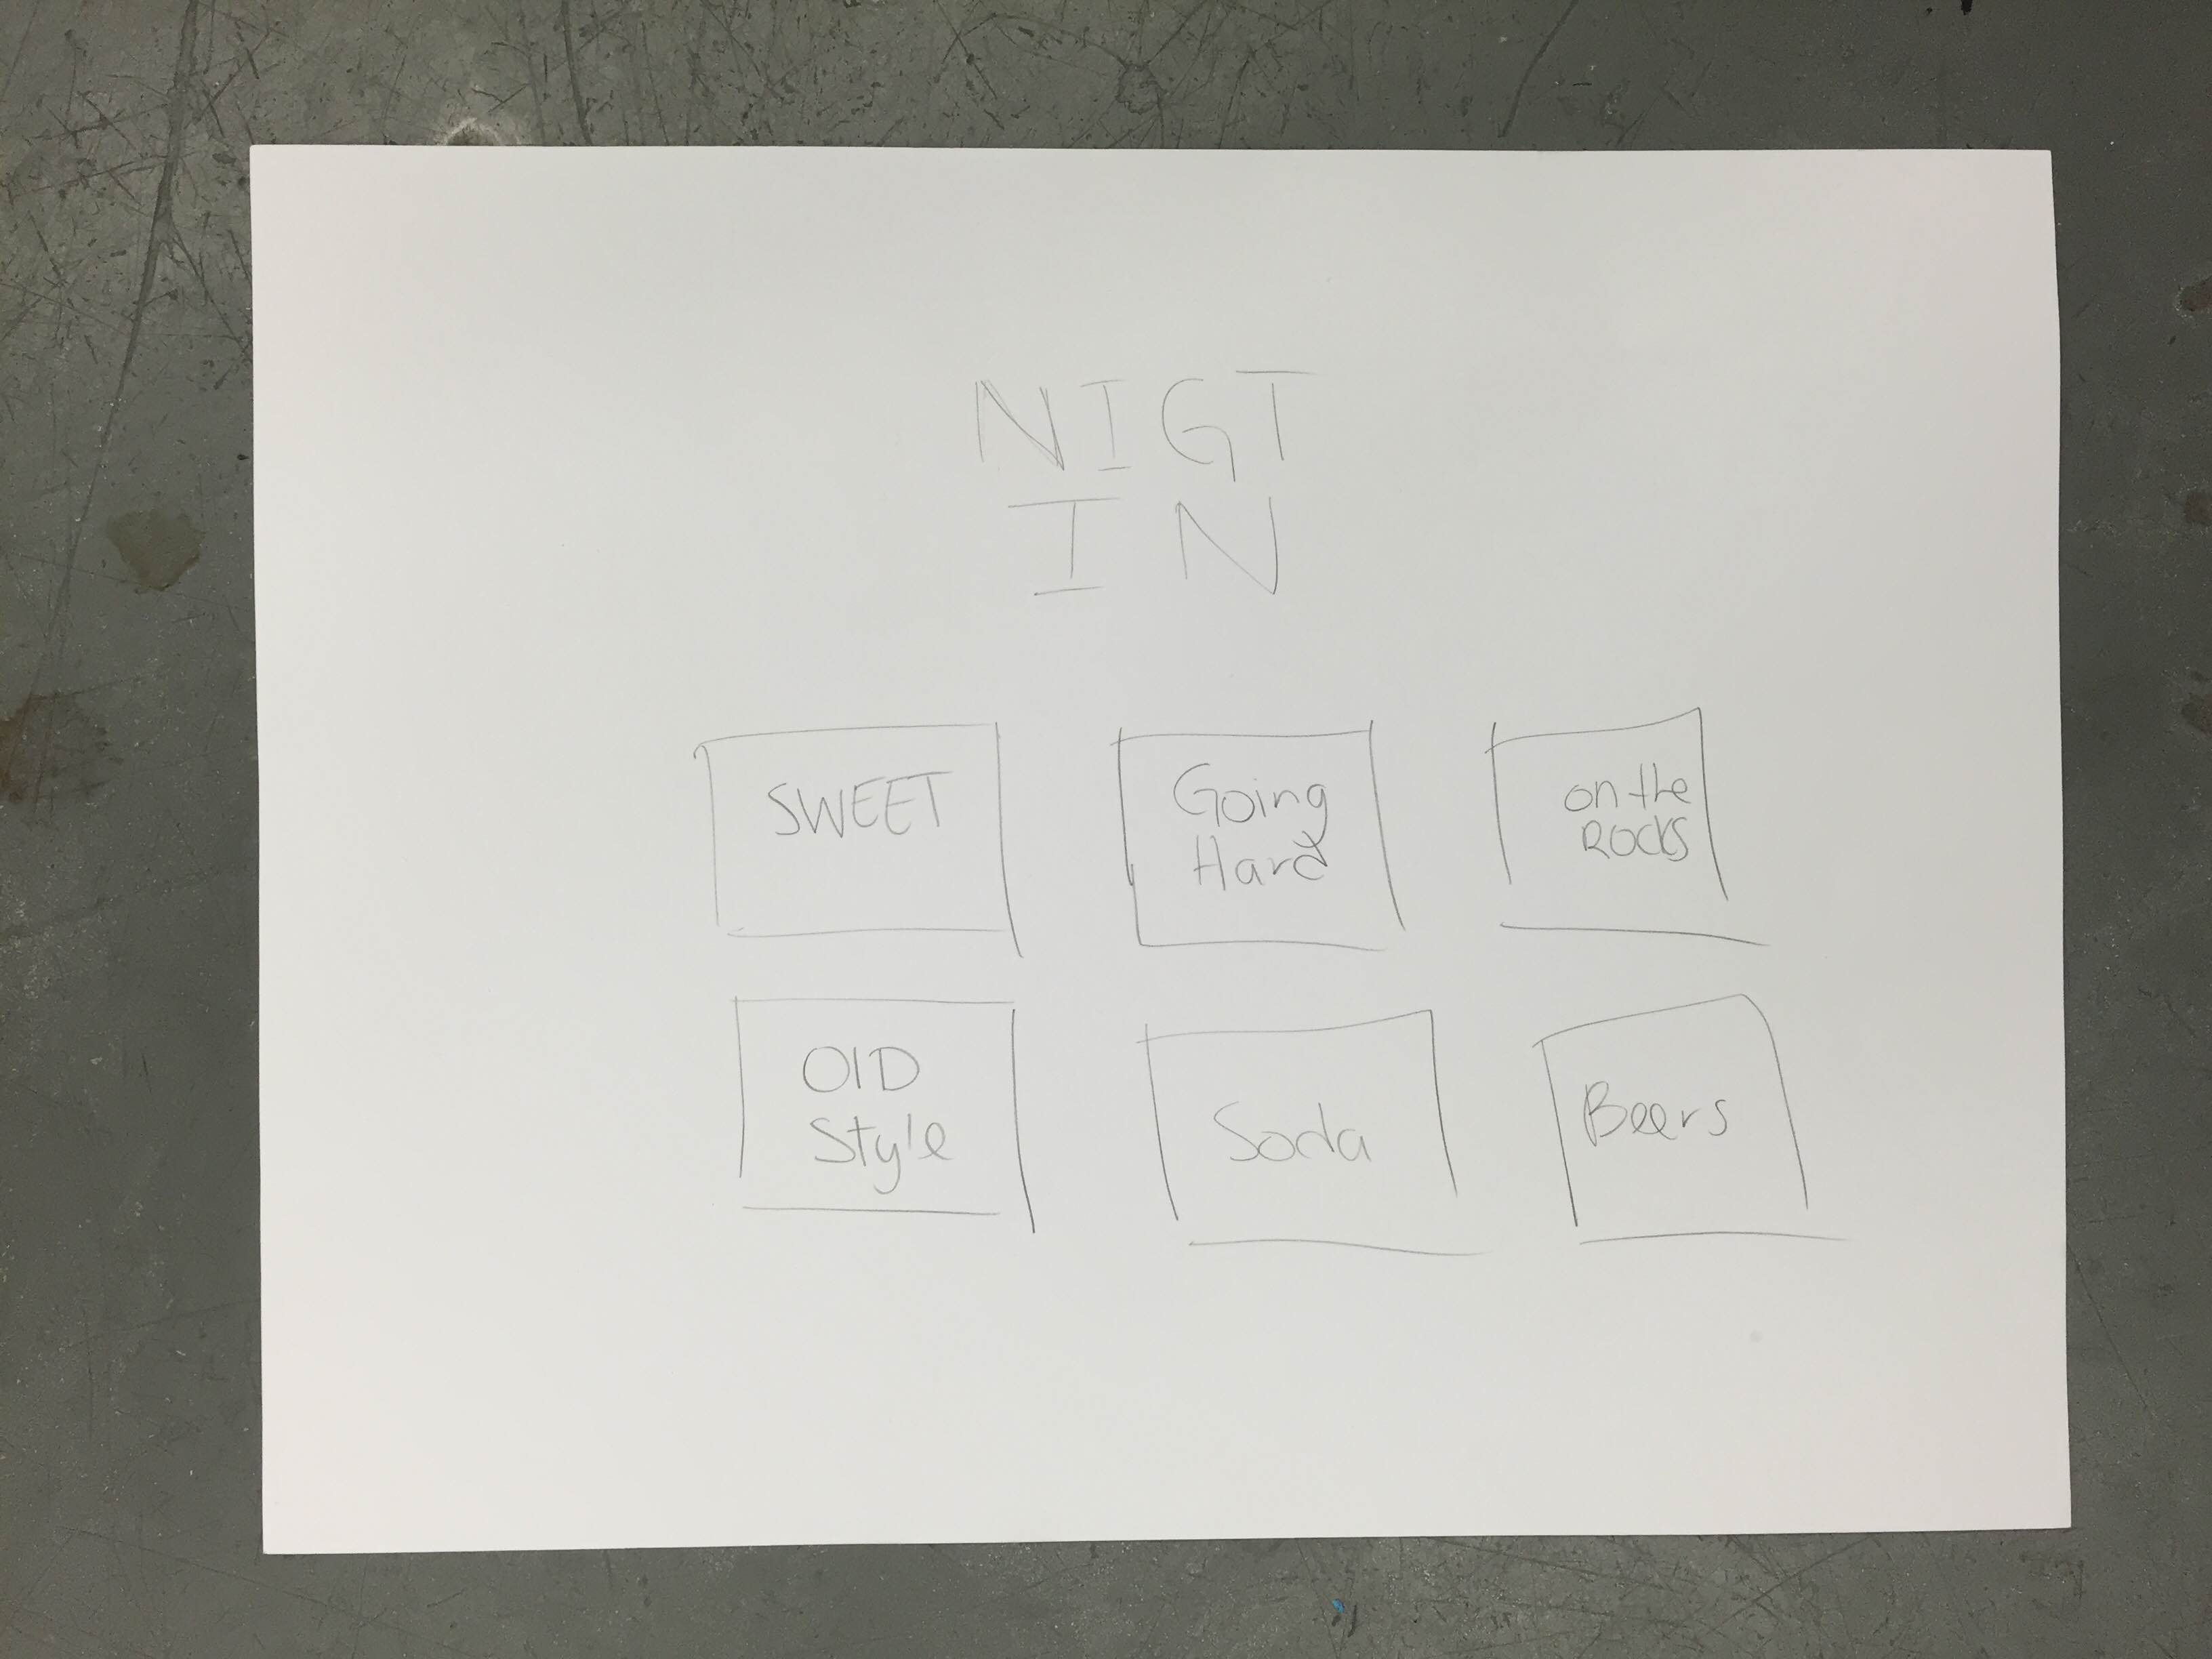 NIGT
IN
SWEET
Going
Hard
on the
Rocks
OlD
Style
Soda
Beers